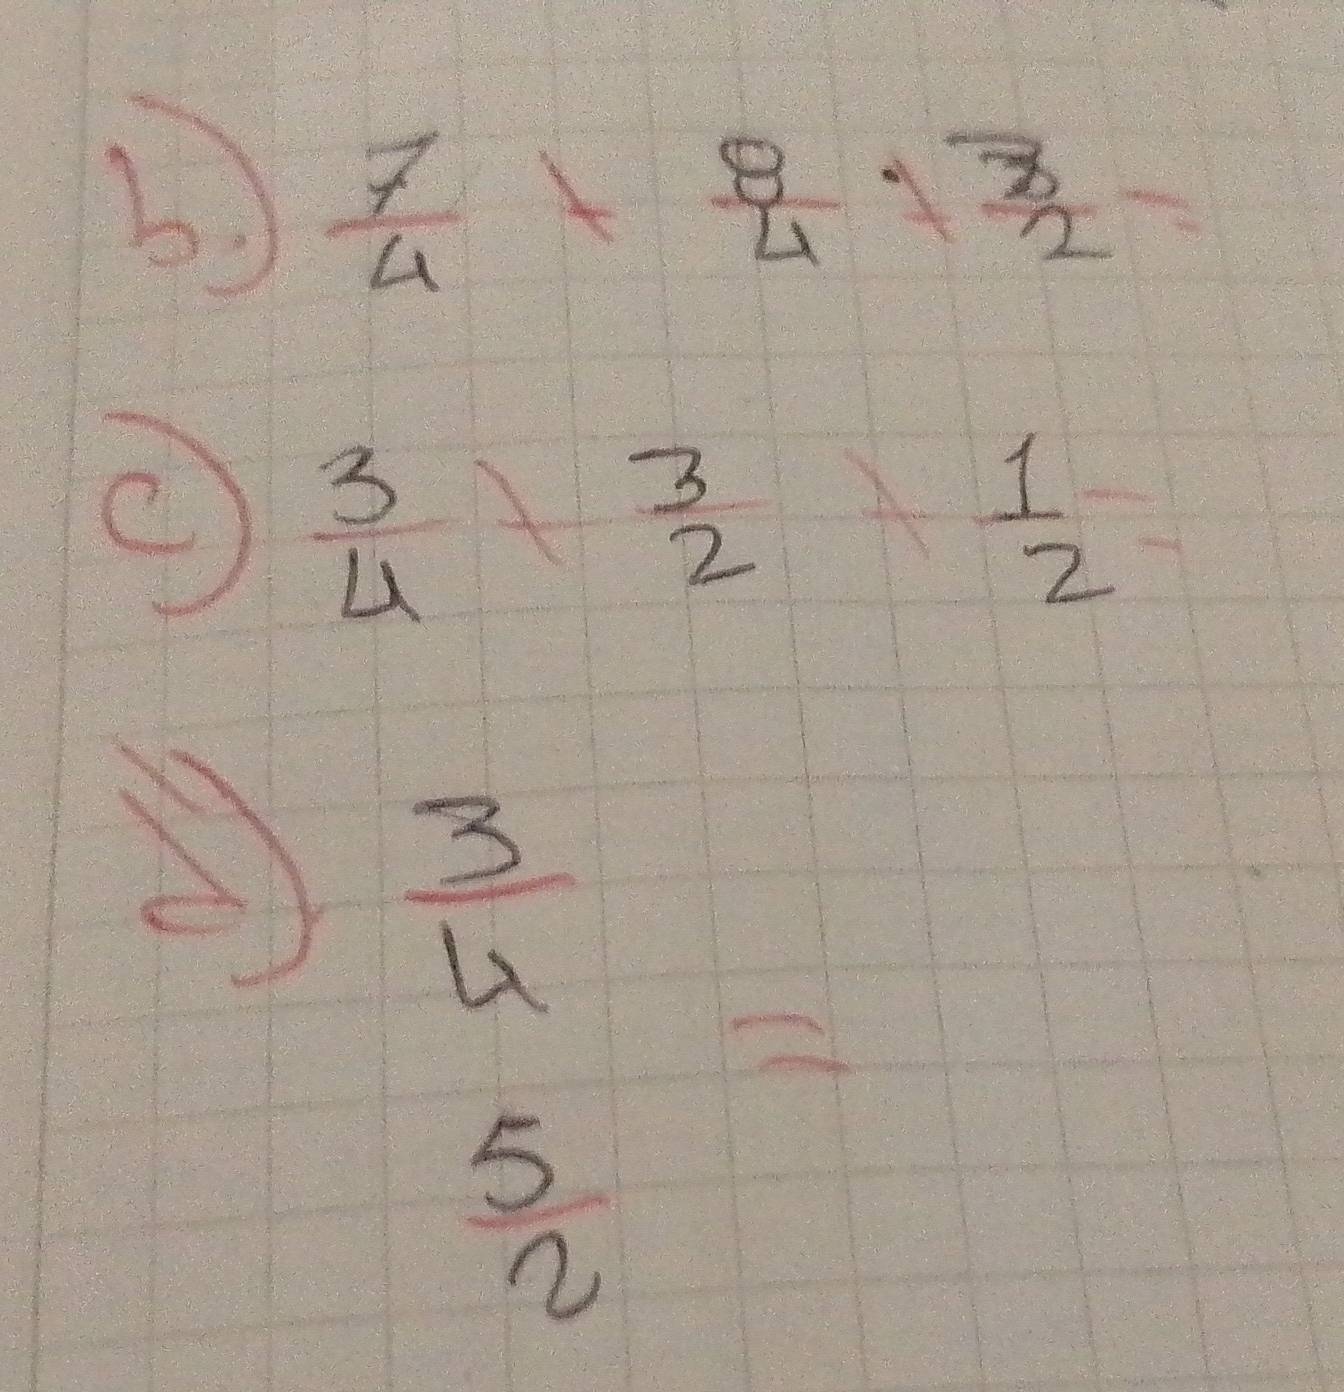 b.) 7/4 + 8/4 + 3/2 =
c) 3/4 + 3/2 + 1/2 =
3/4
=
5/2